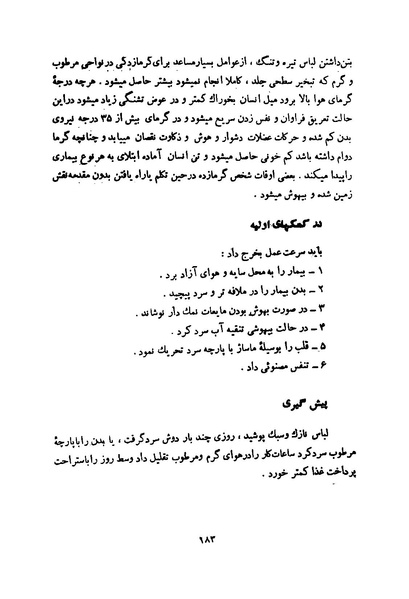 بتن‌داشتن لباس تیره وتنگ ، ازعوامل بسیارمساعد برای‌گرمازدگی درنواحی مرطوب
و گرم که تبخیر سطحی جلد ، کاملا انجام نمیشود بیشتر حاصل میشود . هرچه درجهٔ
گرمای هوا بالا برود میل انسان بخوراك کمتر و در عوض تشنگی زیاد میشود دراین
حالت تعریق فراوان و نفس زدن سریع میشود و در گرمای بیش از ۳۵ درجه نیروی
بدن کم شده و حرکات عضلات دشوار و هوش و ذکاوت نقصان میباید و چنانچه گرما
دوام داشته باشد کم خونی حاصل میشود و تن انسان آماده ابتلای به هرنوع بیماری
راپیدا میکند . بعضی اوقات شخص گرمازده درحین تکلم یاراه یافتن بدون مقدمه‌نقش
زمین شده و بیهوش میشود .
در کمکهای اولیه
باید سرعت عمل بخرج داد :
۱ – بیمار را به محل سایه و هوای آزاد برد .
۲ – بدن بیمار را در ملافه تر و سرد پیچید .
۳ – در صورت بهوش بودن مایعات نمك دار نوشاند .
۴ – در حالت بیهوشی تنقیه آب سرد کرد .
۵ – قلب را بوسیلهٔ ماساژ با پارچه سرد تحریك نمود .
۶ – تنفس مصنوئی داد .
پیش گیری
لباس نازك وسبك پوشید ، روزی چند بار دوش سردگرفت ، یا بدن راباپارچهٔ
مرطوب سردکرد ساعات‌کار رادرهوای گرم ومرطوب تقلیل داد وسط روز راباستراحت
پرداخت غذا کمتر خورد .
۱۸۳